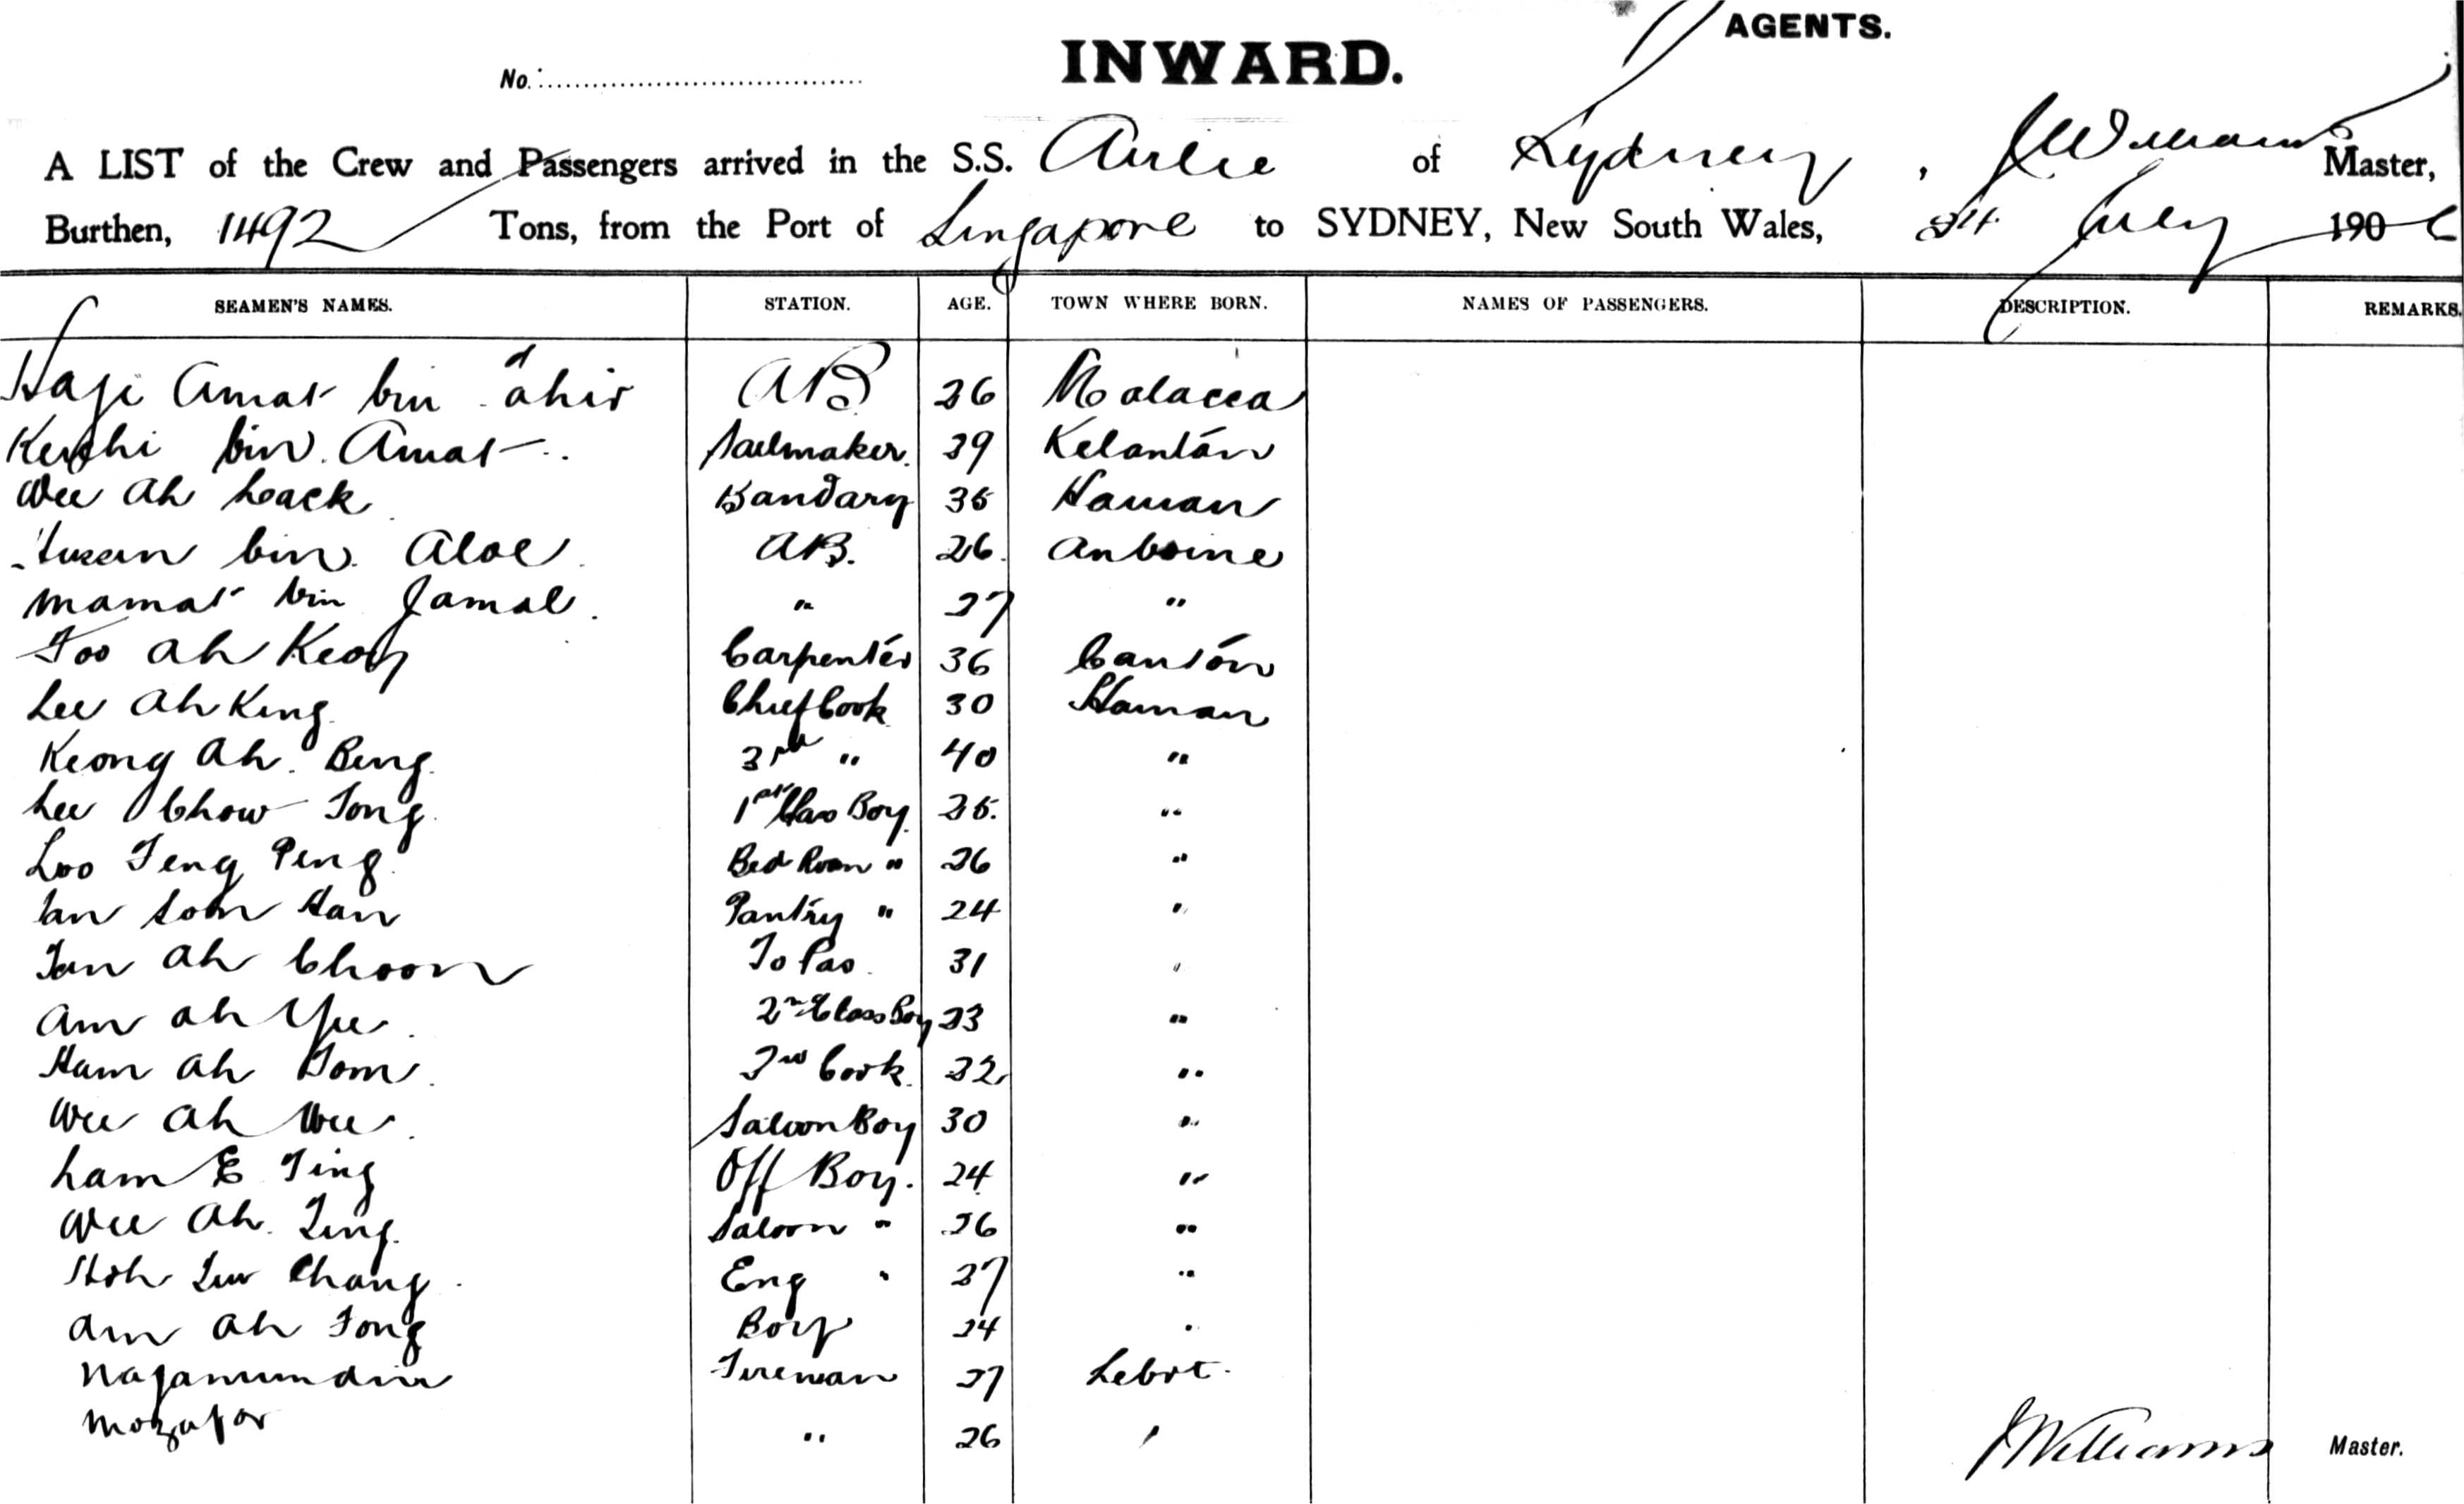 AGENTS.
INWARD.
No.
A LIST of the Crew and Passengers arrived in the S.S. Airlie of Sydney, J Williams Master,
Burthen, 1492 Tons, from the Port of Singapore to SYDNEY, New South Wales, July 190
SEAMEN'S NAMES. STATION. AGE. TOWN WHERE BORN. NAMES OF PASSENGERS. DESCRIPTION. REMARKS.
Haji Amat bin ahir AB 26 Malacca
bin Amat Sailmaker. 39 Kelantan
Wee Ah Loack Bandary 35 Hainan
bin Aloe AB. 26 Amboine
Mamat bin Jamal. " 27 "
Foo Ah Keong Carpenter 36 Canton
Lee Ah King Chief Cook 30 Hainan
Keong Ah Beng 3rd " 40 "
Lee Chow Tong 1st Class Boy. 25. "
Loo Teng Peng Bed Room " 26 "
Tan Son Han Pantry " 24 "
Tan Ah Choon To Pas 31 "
Am Ah Yee 2nd Class Boy 23 "
Ham Ah Tom 2nd Cook 32 "
Wee Ah Wee Saloon Boy 30 "
Lam E Ting Off Boy. 24 "
Wee Ah Ting Saloon " 26 "
Chang Eng " 27 "
Am Ah Tong Boy 24 "
Najamundin Fireman 27
Mozafar " 26 "
J Williams Master.